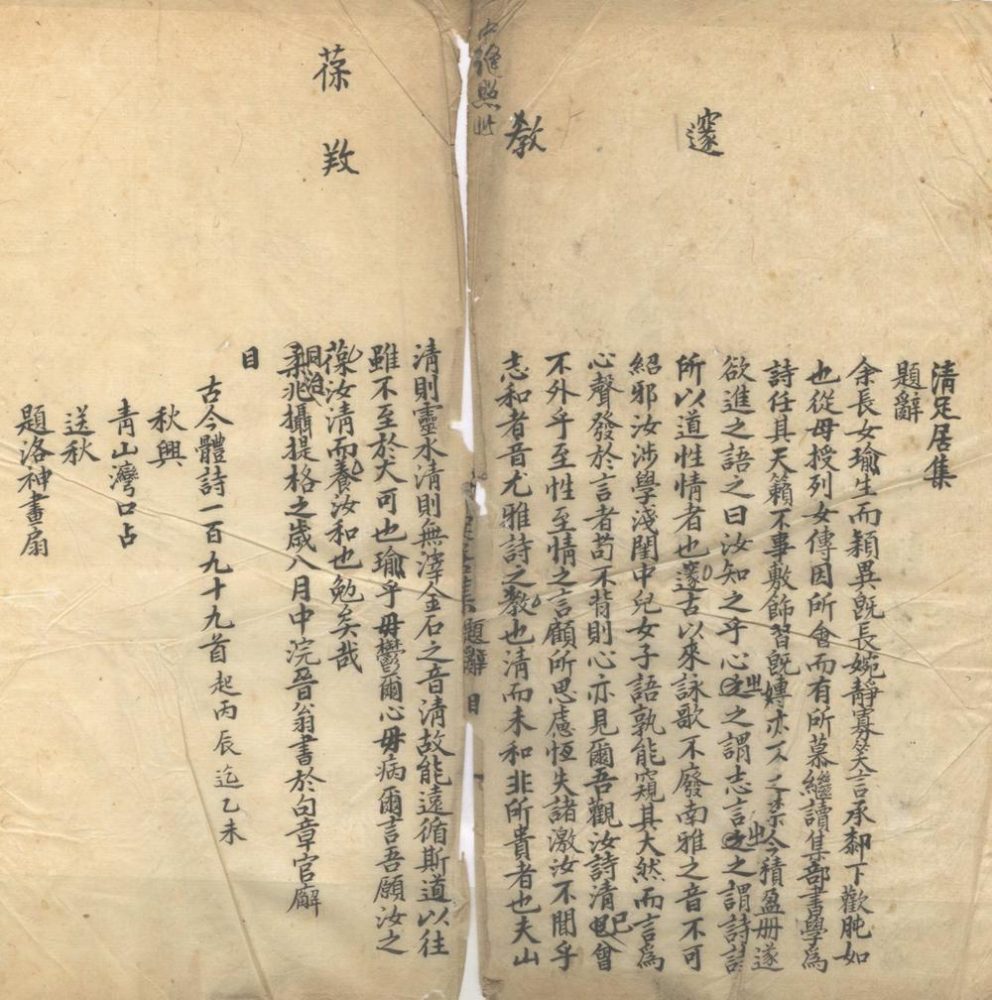 邃
教
中縫照此
葆
養
清足居集
題辭
余長女瑜生而穎異旣長婉靜寡笑言承鄰下歡肫如
也從母授列女傳因所會而有所慕繼讀集部書學為
詩任其天籟不事敷飾習旣嫥亦不之禁今積盈册遂
欲進之語之曰汝知之乎心之之謂志言之之謂詩詩
出
出
所以道性情者也邃古以來詠歌不廢南雅之音不可
紹邪汝涉學淺閨中兒女子語孰能窺其大然而言為
心聲發於言者苟不背則心亦見爾吾觀汝詩清也曾
已
不外乎至性至情之言顧所思慮恆失諸激汝不聞乎
志和者音尤雅詩之教也清而未和非所貴者也夫山
清足居集題辭目
清則靈水清則無滓金石之音清故能遠循斯道以往
雖不至於大可也瑜乎毋鬱爾心毋病爾言吾願汝之
葆汝清而養汝和也勉矣哉
同治
柔兆攝提格之歲八月中浣晉翁書於句章官廨
目
古今體詩一百九十九首起丙辰迄乙未
秋興
青山灣口占
送秋
題洛神畫扇